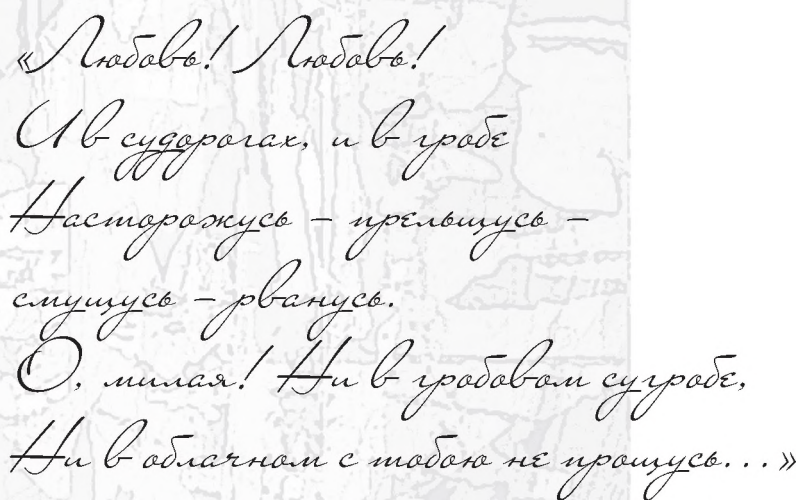 «Любовь! Любовь!
И в судорогах, и в гробе
Насторожусь – прельщусь –
смущусь – рванусь.
О, милая! Ни в гробовом сугробе,
Ни в облачном с тобою не прощусь...»